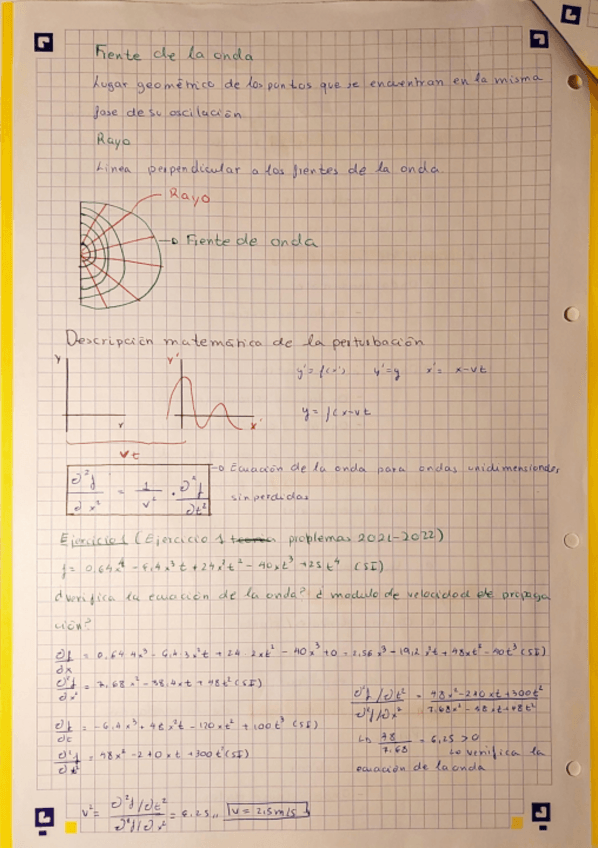 Frente de la onda
Lugar geométrico de los puntos que se encuentran en la misma
fase de su oscilación
Rayo
Línea perpendicular a los frentes de la onda.
Rayo
Frente de onda
Descripción matemática de la perturbación
y y' y'= f(x') y'=y x'= x-vt
y= f(x-vt
x x'
vt
∂²f/∂x² = 1/v² · ∂²f/∂t² → Ecuación de la onda para ondas unidimensionales
sin perdidas
Ejercicio 1 (Ejercicio 1 problemas 2021-2022)
f= 0,64x⁴ - 6,4x³t + 24x²t² - 40xt³ + 25t⁴ (SI)
¿Verifica la ecuación de la onda? ¿modulo de velocidad de propaga
ción?
∂f/∂x = 0,64 4x³ - 6,4·3x²t + 24 2xt² - 40 t³ + 0 = 2,56x³ - 19,2x²t + 48xt² - 40t³ (SI)
∂²f/∂x² = 7,68x² - 38,4xt + 48t² (SI)
∂f/∂t = -6,4x³ + 48x²t - 120xt² + 100t³ (SI)
∂²f/∂t² = 48x² - 240xt + 300t² (SI)
∂²f/∂t² / ∂²f/∂x² = 48x²-240xt+300t² / 7,68x²-38xt+48t²
↳ 48/7,68 = 6,25 > 0
↳ verifica la
ecuación de la onda
v² = ∂²f/∂t² / ∂²f/∂x² = 6,25,, v = 2,5 m/s